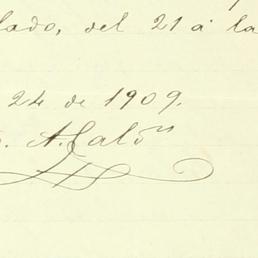 lado, del 21 á la
24 de 1909.
A. Galón